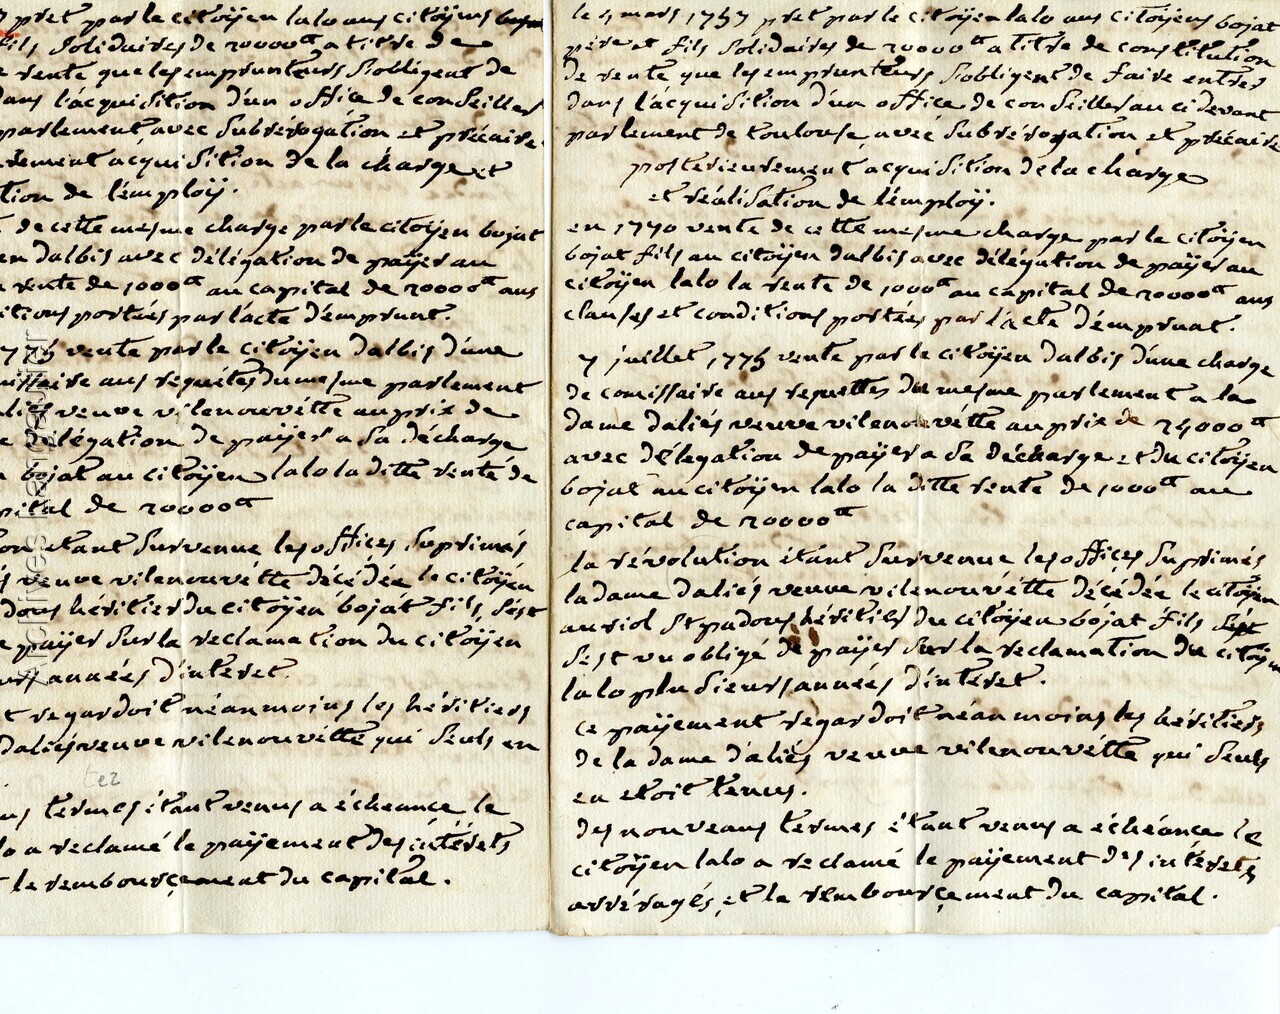 pret par le citoÿen lalo aus citoÿens bojat
fils Solidaires de 20000ᵗᵗ a titre de
rente que les emprunteurs S'obligent de
dans l'acquisition d'un office de conseiller
parlement avec Subrérogation et précaire
acquisition de la charge et
tion de l'emploÿ.
de cette mesme charge par le citoÿen bojat
en dalbis avec délégation de paÿer au
rente de 1000ᵗᵗ au capital de 20000ᵗᵗ aus
itions portées par l'acte d'emprunt.
1775 vente par le citoÿen dalbis d'une
missaire aus requêtes du mesme parlement
daliés veuve vilenouvétte au prix de
délégation de paÿer a Sa décharge
bojat au citoÿen lalo la ditte rente de
pital de 20000ᵗᵗ
on étant Survenue les offices Suprimés
veuve vilenouvétte décédée le citoÿen
padous héritier du citoÿen bojat fils S'est
paÿer Sur la reclamation du citoÿen
années d'interet.
regardoit néanmoins les héritiers
daliés veuve vilenouvétte qui Seuls en
tez
termes étant venus a échéance le
lo a reclamé le paÿement des intérêts
le rembourçement du capital.
Archives Bergeunier
le 5 mars 1757 pret par le citoÿen lalo aus citoÿens bojat
père et fils Solidaires de 20000ᵗᵗ a titre de constitution
de rente que les emprunteurs S'obligent de faire entrer
dans l'acquisition d'un office de conseiller au ci devant
parlement de toulouse avec Subrérogation et précaire
posterieurement acquisition de la charge
et réalisation de l'emploÿ.
en 1770 vente de cette mesme charge par le citoÿen
bojat fils au citoÿen dalbis avec délégation de paÿer au
citoÿen lalo la rente de 1000ᵗᵗ au capital de 20000ᵗᵗ aus
clauses et conditions portées par l'acte d'emprunt.
7 juillet 1775 vente par le citoÿen dalbis d'une charge
de comissaire aus requettes du mesme parlement a la
dame daliés veuve vilenouvétte au prix de 25000ᵗᵗ
avec délégation de paÿer a Sa décharge et du citoÿen
bojat au citoÿen lalo la ditte rente de 1000ᵗᵗ au
capital de 20000ᵗᵗ
la révolution étant Survenue les offices Suprimés
la dame daliés veuve vilenouvétte décédée le citoÿen
auriol St padous héritier du citoÿen bojat fils
S'est vu obligé de paÿer Sur la reclamation du citoÿen
lalo plusieurs années d'intéret.
ce paÿement regardoit néanmoins les héritiers
de la dame daliés veuve vilenouvétte qui Seuls
en etoit tenus.
des nouveaus termes étant venus a échéance le
citoÿen lalo a reclamé le paÿement des intérets
arréragés, et le rembourçement du capital.